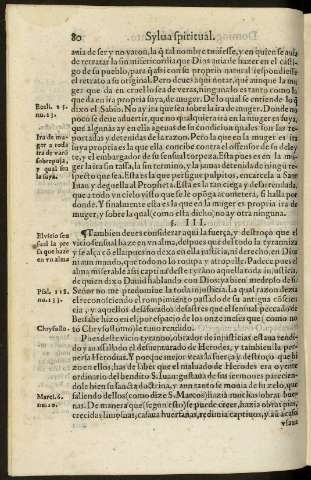 80 Sylua spiritual.
auia de ser y no varon, la q̃ tal nombre tuuiesse, y en quien se auia
de retratar la sin misericordia que Dios auia de hazer en el casti-
go de su pueblo, para q̃ assi con su proprio natural respondiesse
el retrato a su original. Pero deues aqui notar, que aunque la mu
ger que da en cruel lo sea de veras, ninguna lo es tanto como la
que da en ira propria suya, de muger. De lo qual se entiende lo q̃
dixo el Sabio. No ay ira que sea sobre la ira de muger. Donde no
poco se deue aduertir, que no qualquiera ira en la muger es suya,
que algunas ay en ella agenas de su condicion quales son las re-
portadas y detenidas de la razon. Pero la que en la muger es ira
suya propria es la que ella concibe contra el offensor de su deley-
te, y el embargador de su sensual torpeza. Esta pues es en la mu
ger la ira sin tassa, la sin termino, y la jamas detenida de ningũ re
specto que sea. Esta es la que persigue pulpitos, encarcela a San
Iuan y deguella al Propheta. Esta es la tan ciega y desrenada,
que a todo vn cielo visto que se le opõga acometera, si halla por
donde. Y finalmente esta es la que en la muger es propria ira de
muger, y sobre la qual (como esta dicho) no ay otra ninguna.
§. III.
¶ Tambien deues considerar aqui la fuerça, y destroço que el
vicio sensual haze en vn alma, despues que del todo la tyranniza
y se alça cõ ella pues no dexa en ella justicia, ni derecho, en Dios
ni aun mundo, que todo no lo rompa y atropelle. Padece pues el
alma miserable assi captiua deste tyrano aquella toda injusticia,
de quien dixo Dauid hablando con Dios: ya bien medroso de si.
Señor no me predomine la toda injusticia. La qual razon dezia
el reconosciendo el rompimiento passado de su antigua cõscien
cia, y aquellos desafueros y desastres que el sensual peccado de
Bersabe hizo en el, por espacio de los onze meses que (como no
tò Chrysostomo) le tuuo rendido.
Pues deste vicio tyranno, obrador de injusticias estaua rendi-
do y auassallado el desauenturado de Herodes, y tambien la per-
uersa Herodias. Y porque mejor veas la fuerça y destroço que hi
zo en ellos, has de saber que el maluado de Herodes era oyente
ordinario del bendito S. Iuan: gustaua de sus sermones parecien-
dole bien su sancta doctrina, y aun tanto se mouia de su zelo, que
saliendo dellos (como dize S. Marcos) hazia muchas obras bue
nas. De manera que (segun esto) se puede creer, hazia obras pias,
crecidas limosnas, casaua huerfanas, redimia captiuos, y aũ acaso
vsaua
Eccli. 25.
nu. 23.
Ira de mu-
ger a toda
ira de varõ
sobrepuja,
y qual sea
la suya.
El vicio sen
sual la pre
sa que haze
en vn alma
Psal. 118.
nu. 133.
Chrysosto.
Marci. 6.
nu. 20.